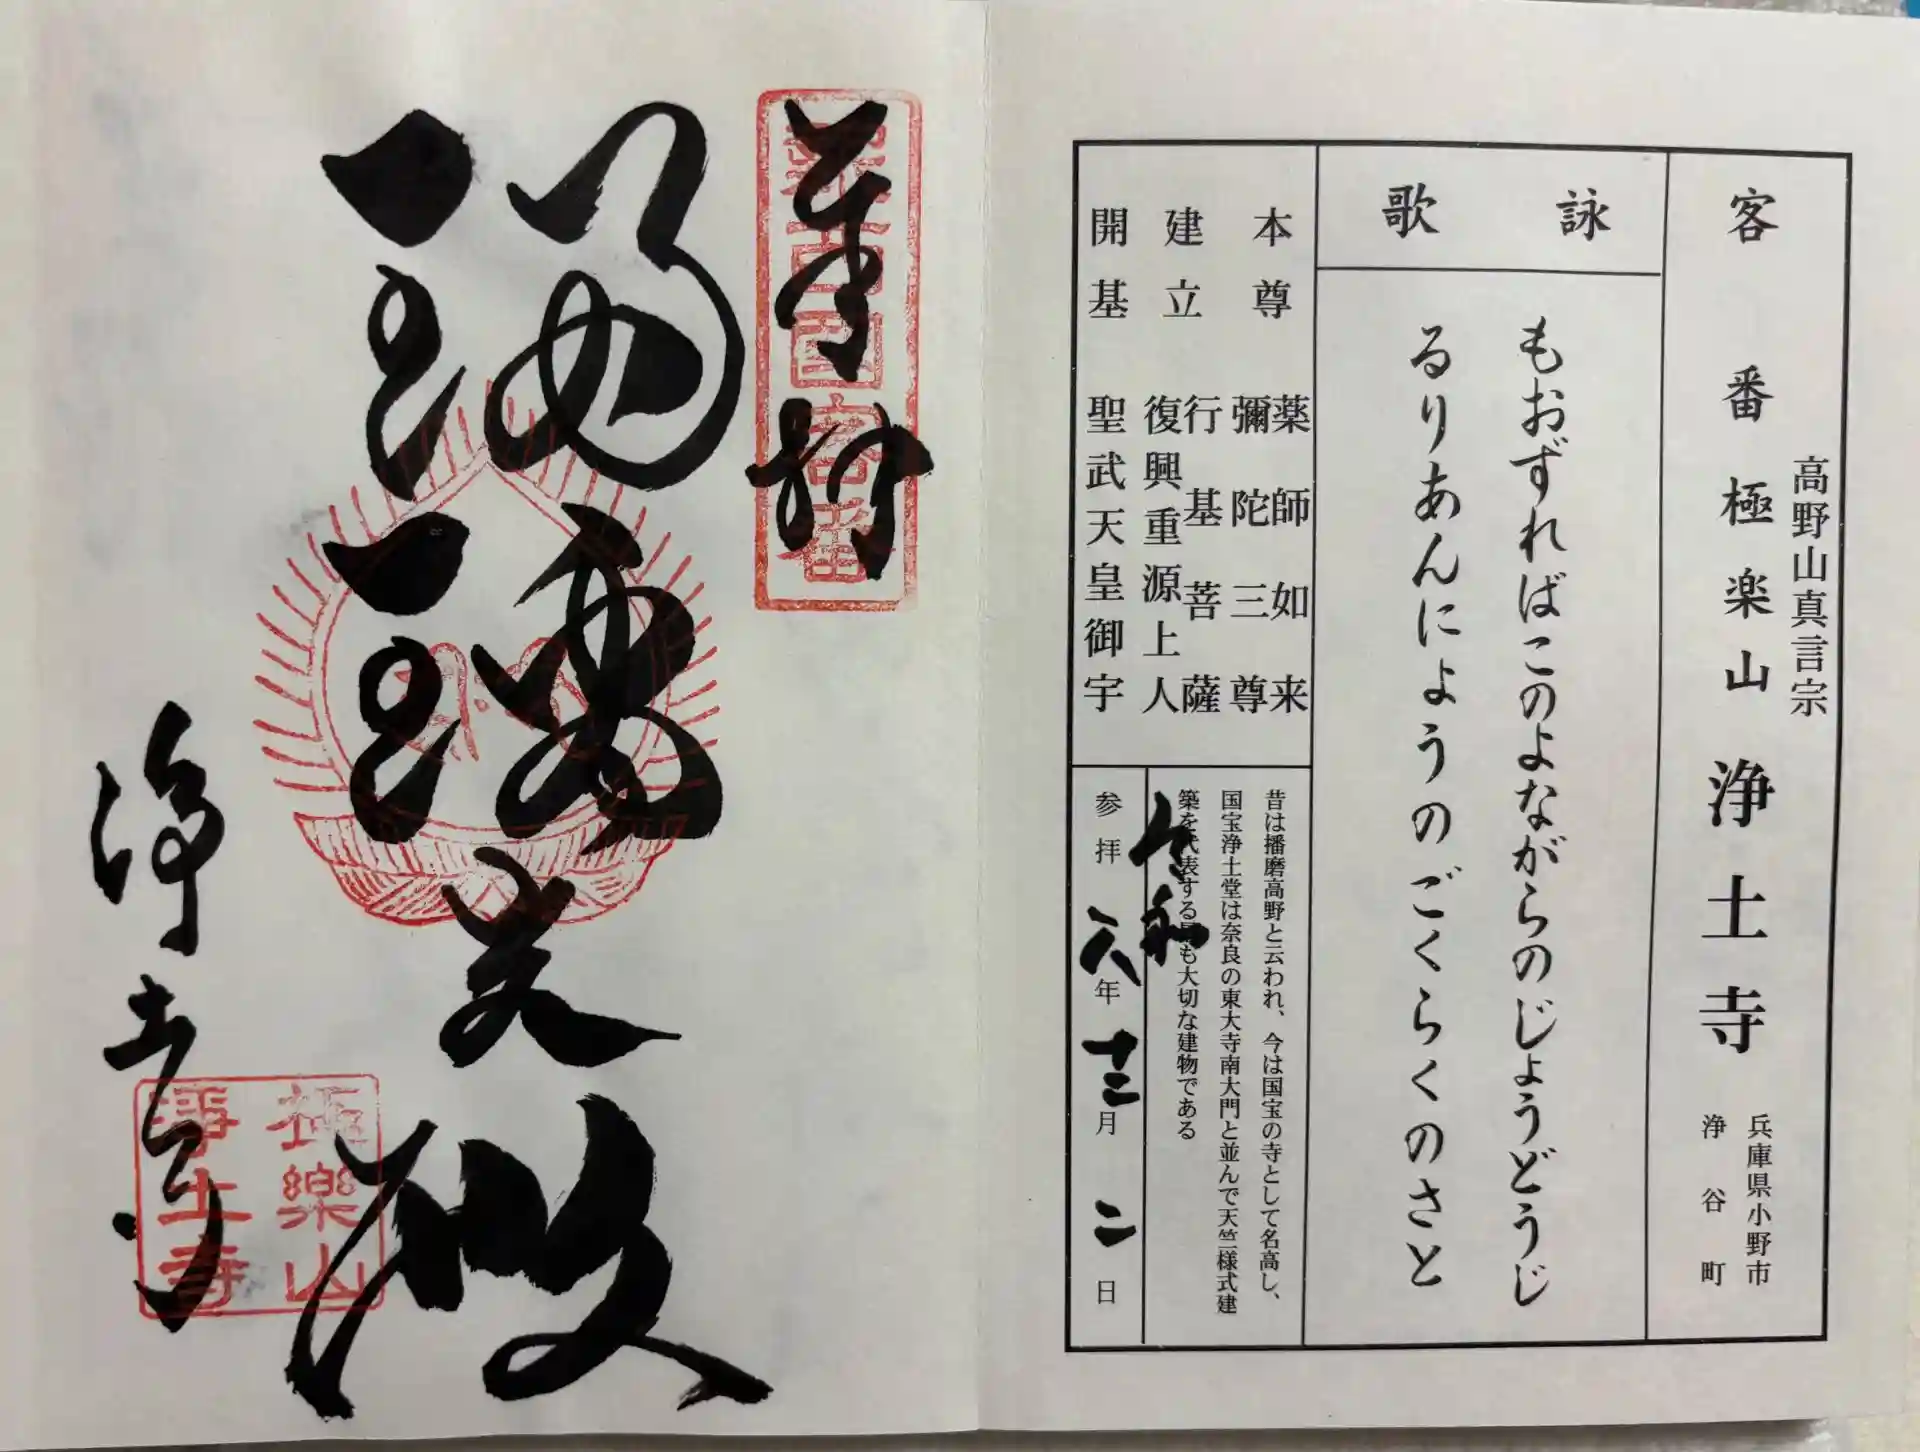 客番 極楽山 浄土寺
高野山真言宗
兵庫県小野市
浄谷町
詠歌
もおずればこのよながらのじょうどうじ
るりあんにょうのごくらくのさと
本尊 薬師如来
彌陀三尊
建立 行基菩薩
復興重源上人
開基 聖武天皇御宇
昔は播磨高野と云われ、今は国宝の寺として名高し、
国宝浄土堂は奈良の東大寺南大門と並んで天竺様式建
築を代表する最も大切な建物である
令和
参拝 六年 十二月 二日
奉拝
新西国客番
瑠璃殿
浄土寺
極樂山
浄土寺